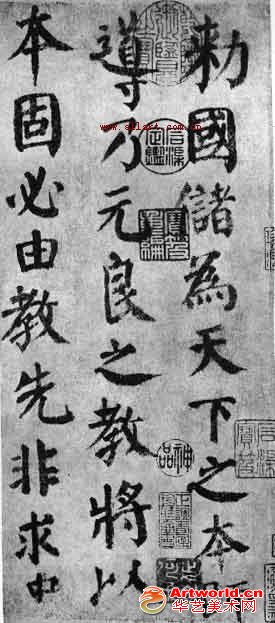 勅國儲為天下之本
導乃元良之教將以
本固必由教先非求
神品
Artworld.cn
华艺美术网